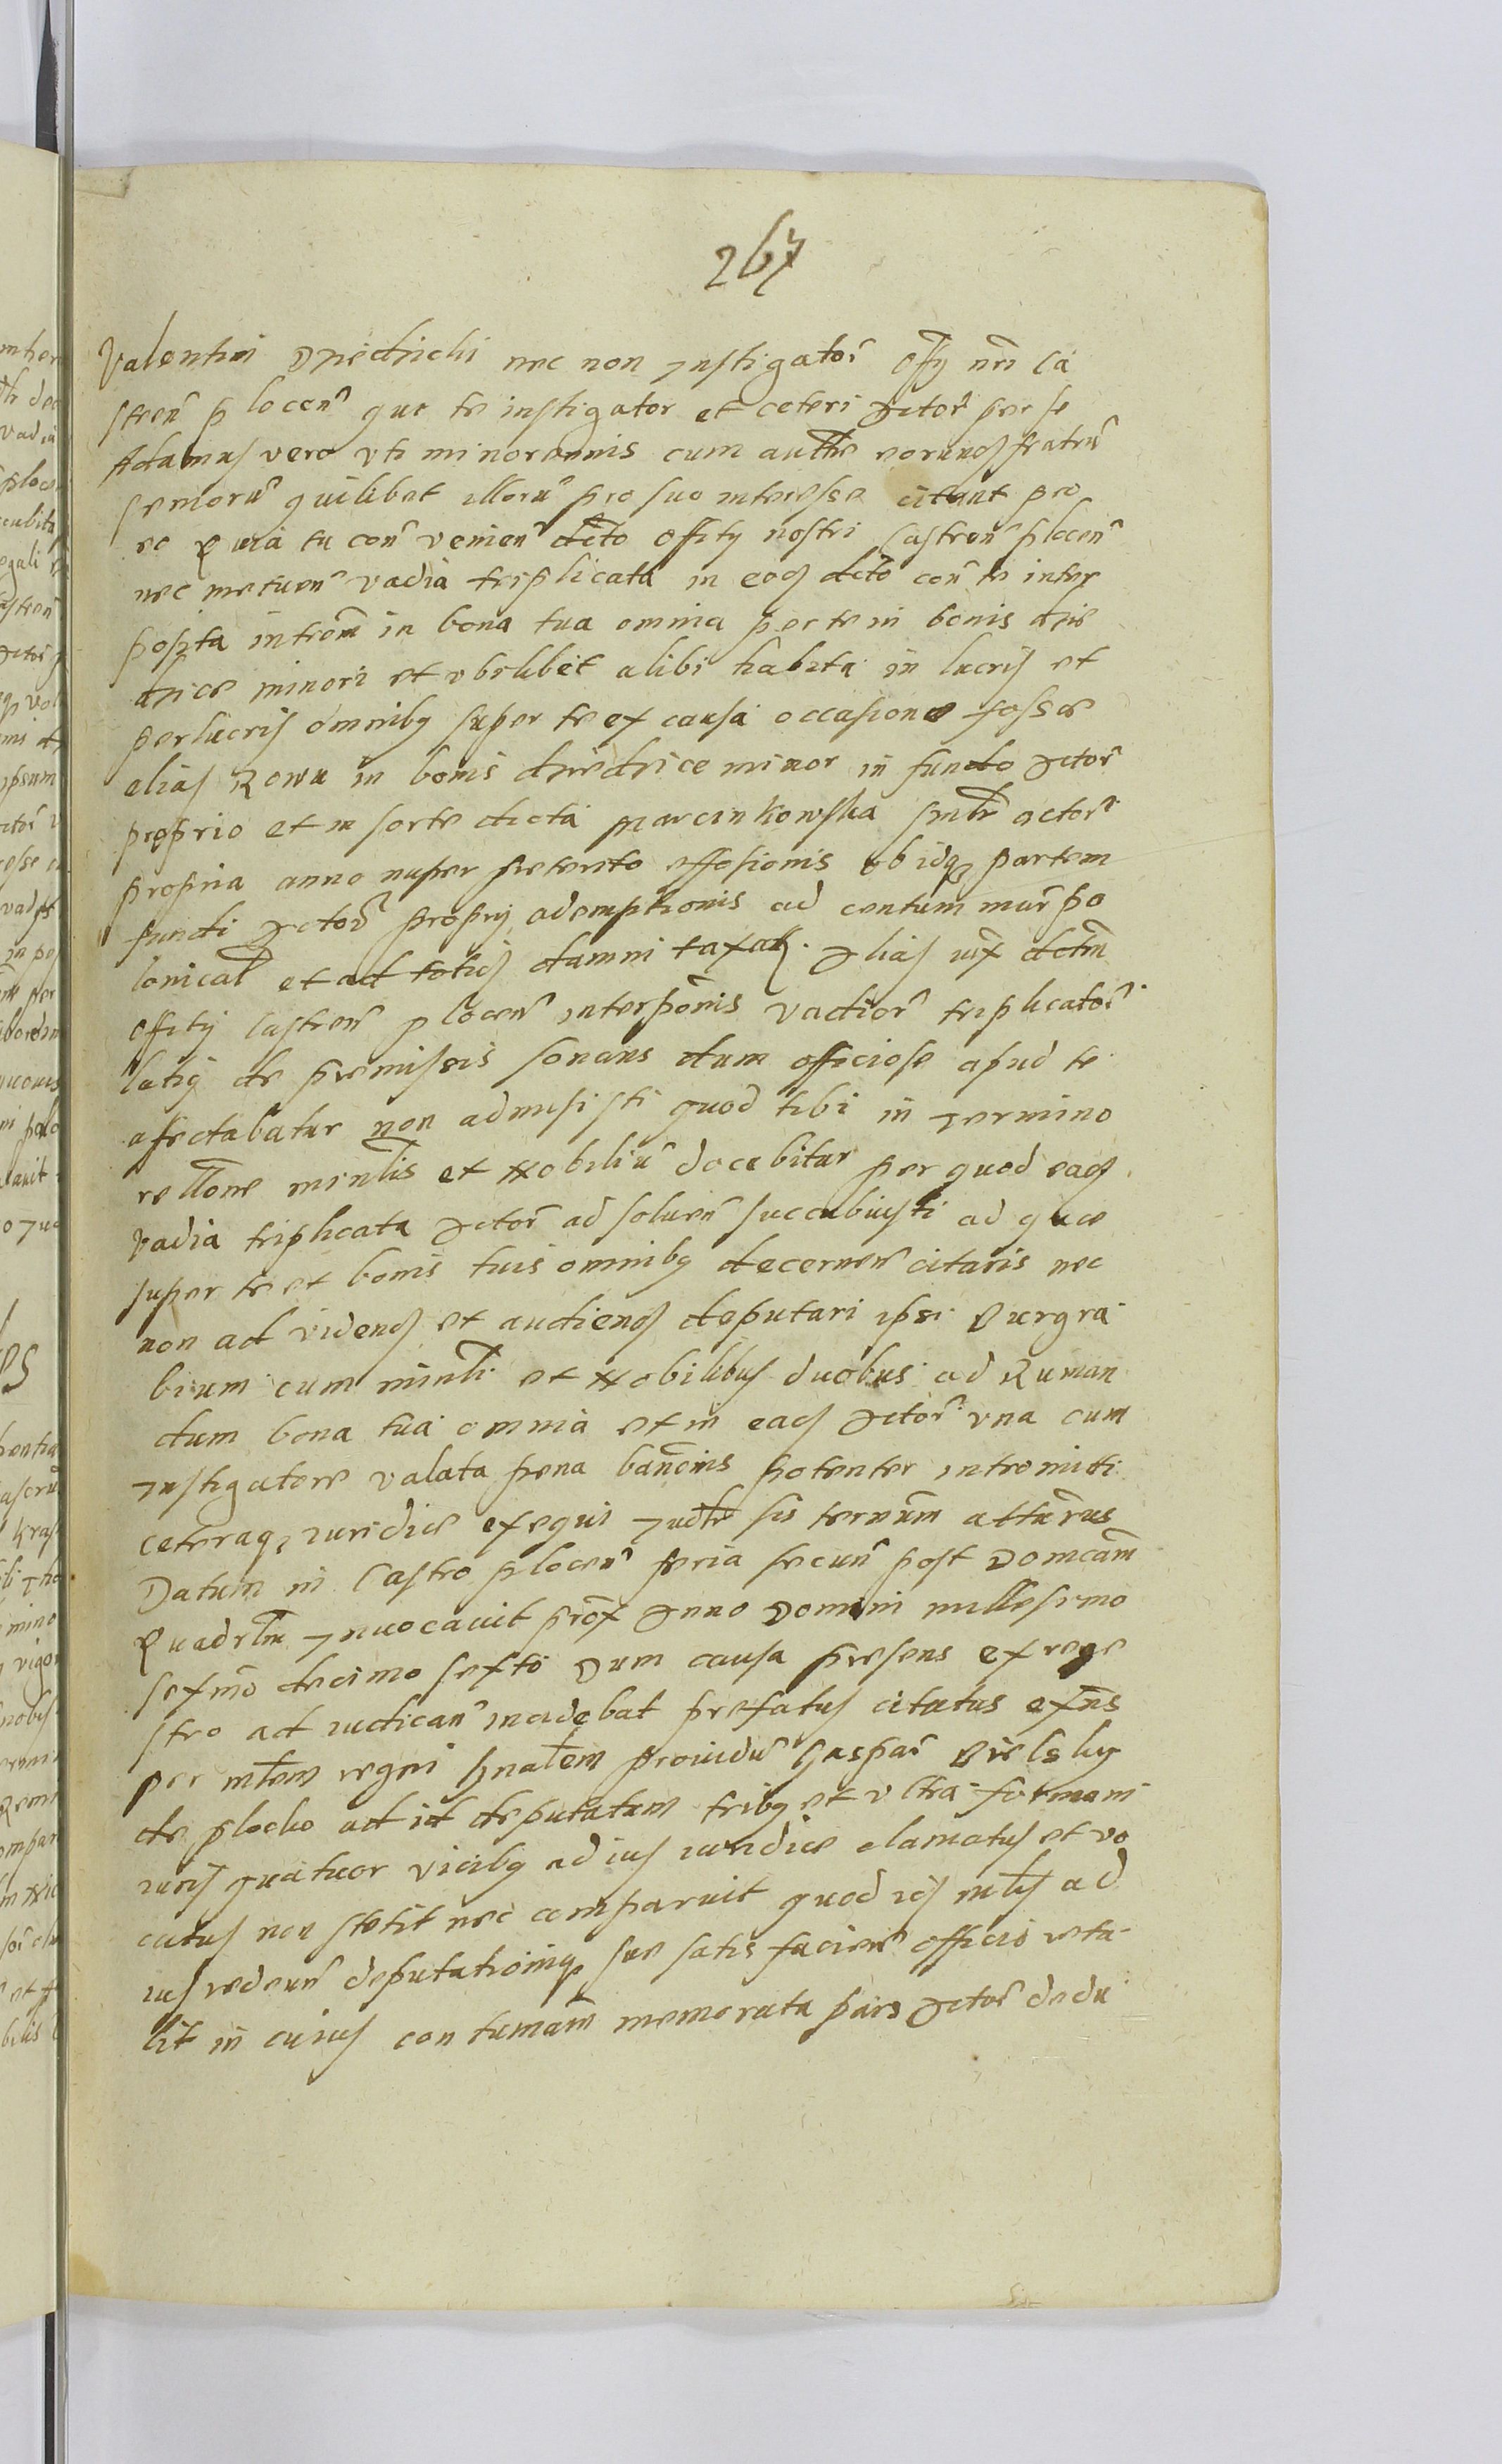 267
Valentini Dziedzichi nec non Instigatoř Offy nři Ca
streň plocen̄ que te instigator et ceteri Actoř per se
Adamus vero vti minorennis cum auth̃te eorundꝫ fratrũ
seniorũ quilibet illorũ pro suo interesse citant pro
eo Quia tu coñ venien̄ dec̃to Offity nostri Castren̄ plocen̄
nec metuen̄ vadia triplicata in eodꝫ dec̃to coñ te inter
posita introm̃ in bona tua omnia per te in bonis dzie
dzice minori et vbilibet alibi habita in lucris et
perlucris omnibꝫ super te ex causa occasione fosse
alias Rowu in bonis dziedzice minor in fundo Actoř
proprio et in sorte dicta Marcinkowska sml̃r actoř
propria anno nuper preterito effosionis ob idqꝫ partem
fundi Actoř proprij ademptionis ad centum mař po
lonical̃ et ad totidꝫ damni taxatꝫ. Alias iux̃ dec̃tm̃
offity Castren̄ plocen̄ interpõnis vadioř triplicatoř
latiꝫ de premissis sonans dum officiose apud te
afectabatur non admisisti quod tibi in Termino
rellõne minl̃is et Nobiliũ docebitur per quod eadꝫ
vadia triplicata Actoř ad soluen̄ succubuisti ad que
super te et bonis tuis omnibꝫ decernen̄ citaris nec
non ad videndꝫ et audiendꝫ deputari ipsi Burgra
bium cum minl̃i et Nobilibus duobus ad Ruman
dum bona tua omnia et in eadꝫ Actoř vna cum
Instigatore valata pena bañonis potenter intromitti
ceteraqꝫ iuridice exequi Iudl̃e sis termũm atturũs
Datum in Castro plocen̄ feria secun̄ post Domcãm
Quadrlm̃ Inuocauit prõx Anno Domini millesimo
sexm̃o decimo sexto Dum causa presens ex rege
stro ad iudican̄ incidebat prefatus citatus exñs
per mĩlem regni gñalem prouidũ Gaspař Bielsky
de plocko ad id deputatum tribꝫ et vltra formam
iuris quatuor vicibꝫ ad ius iuridice clamatus et vo
catus non stetit nec comparuit quod idꝫ mĩls ad
ius redeun̄ deputationiqꝫ sue satis facien̄ officio retu
lit in cuius contumaãm memorata pars Actoř dedu